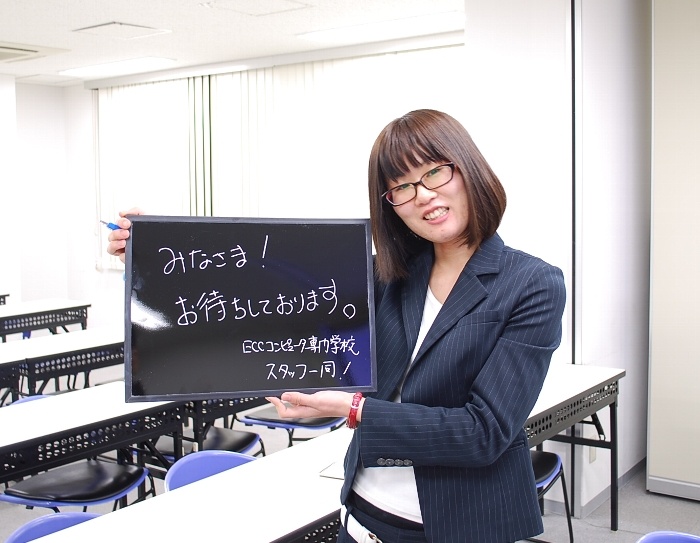 みなさま！
お待ちしております。
ECCコンピュータ専門学校
スタッフ一同！